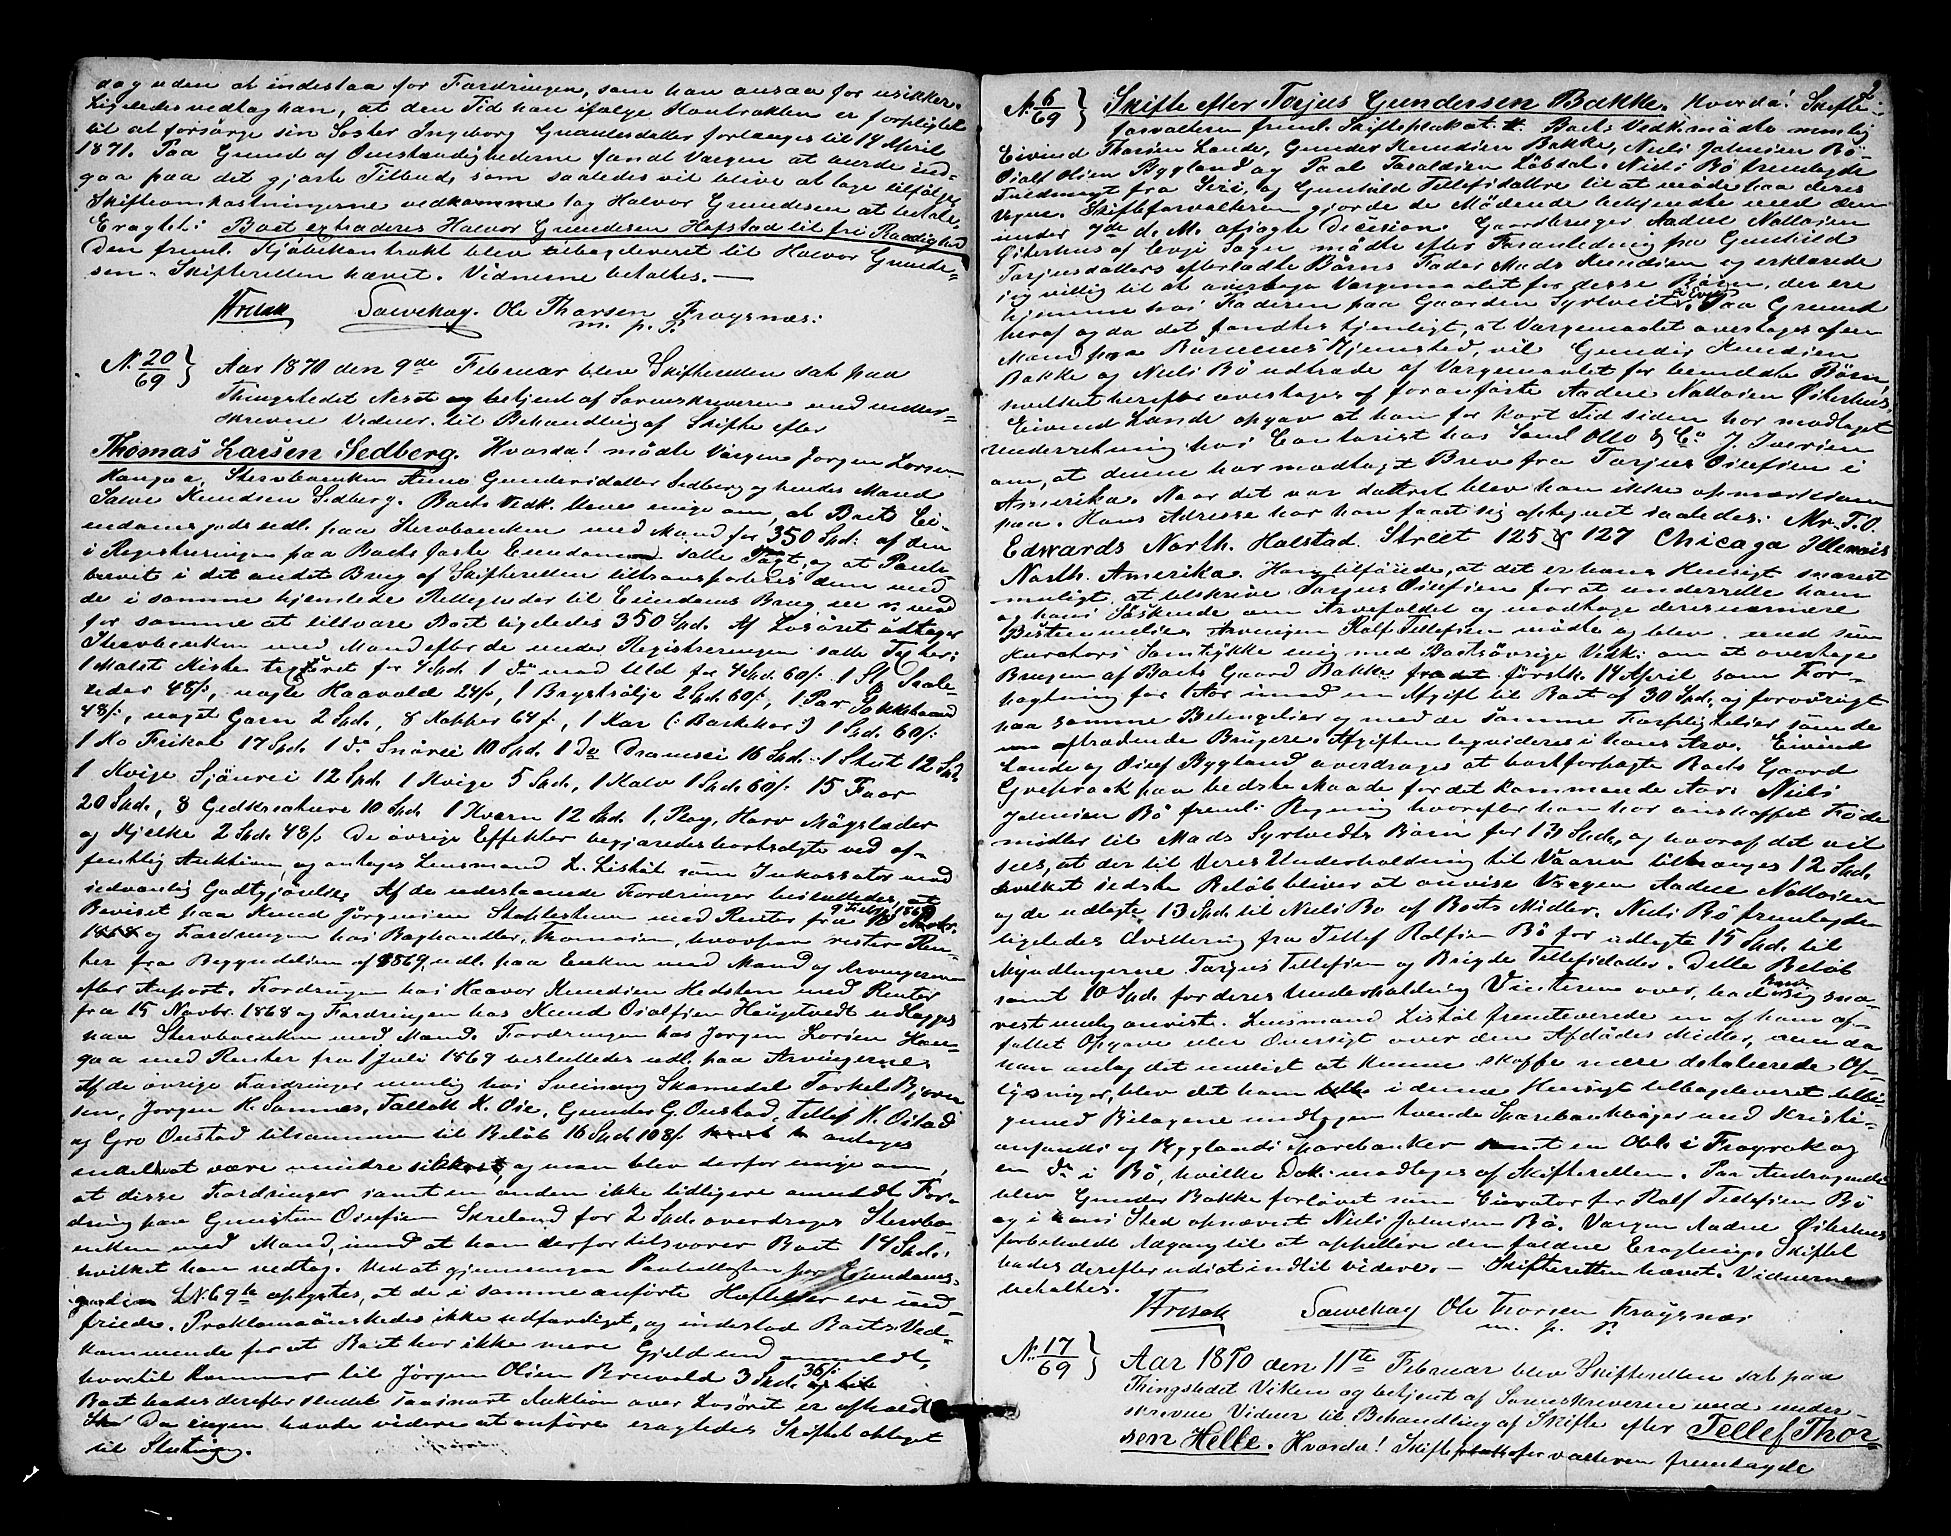 dog uden at indestaa for Fordringen, som han ansaa for usikker.
Ligeledes vedtog han, at den Tid han ifølge Kontrakten er forpligtet
til at forsørge sin Søster Ingeborg Gundersdatter forlænges til 14 April
1871. Paa Grund af Omstændighederne fandtVærgen at burde ind-
gaa paa det gjorte Tilbud, som saaledes vil blive at tage tilfølge.
Skifteomkostningerne vedkommende tog Halvor Gundersen at betale.
Eragtet: Boet extraderes Halvor Gundersen Hofstad til fri Raadighed
Den freml. Kjøbekontrakt blev tilbageleveret til Halvor Gunder-
sen. Skifteretten hævet. Vidnerne betaltes.
Ole Thorsen Frøysnæs:
m. p. P.
N. 20/69 } Aar 1870 den 9de Februar blev Skifteretten sat paa
Thingstedet Neset og betjent af Sorenskriveren med under-
skrevne Vidner til Behandling af Skifte efter
Thomas Larsen Sedberg. Hvorda! mødte Værgen Jørgen Larsen
Haugaa, Stervboenken Anne Gundersdatter Sedberg og hendes Mand
Salve Knudsen Sedberg. Boets Vedk. blev enige om, at Boets Ei-
endomsgods udl. paa Stervboenken med Mand for 350 Spd: af den
i Registreringen paa Boets faste Eiendomme satte Taxt, og at Pante-
brevet i det andet Brug af Skifteretten transporteres dem med
de i samme hjemlede Rettigheder til Eiendoms Brug
for samme at tilsvare Boet ligeledes 350 Spd. Af Løsøret udtager
Stervboenken med Mand efter de under Registreringen satte Taxter:
1 Malet Kiste for 4 Spd. 1 do med Uld for 4 Spd. 60 ß. 1 St. Saale-
læder 48 ß, nogle Haavold 24 ß, 1 Brystsølje 2 Spd. 60 ß, 1 Par
48 ß, noget Garn 2 Spd., 8 Kopper 64 ß, 1 Kar (: Barkekar:) 1 Spd. 60 ß.
1 Ko Frikol 17 Spd. 1 do Snørei 10 Spd. 1 Do Dramsei 16 Spd. 1 Stut 12 Spd.
1 Kvige Sjønrei 12 Spd. 1 Kvige 5 Spd, 1 Kalv 1 Spd. 60 ß. 15 Faar
20 Spd., 8 Gedkreature 10 Spd. 1 Kværn 12 Spd. 1 Plog, Harv Møgslæder
og Kjelke 2 Spd. 48 ß. De øvrige Effekter begjæredes bortsolgte ved of-
fentlig Auktion, og antages Lensmand L. Listøl som Inkassator mod
sedvanlig Godtgjørelse. Af de udestaaende Fordringer besluttedes, at
Beviset paa Knud Jørgensen med Renter fra 9 Febr 1869
1868 og Fordringen hos Boghandler Thomesen, hvorpaa restere Ren-
ter fra Begyndelsen af 1869, udl. paa Enken med Mand og Arvingerne
efter Anpart. Fordringen hos Haavor Knudsen Hedsten med Renter
fra 15 Novbr. 1868 og Fordringen hos Knud Osulfsen Haugtvedt udlægges
paa Stervboenken med Mand. Fordringen hos Jørgen Larsen Hau-
gaa med Renter fra 1 Juli 1869 besluttedes udl. paa Arvingerne.
Af de øvrige Fordringer nemlig hos Sveinung Skomedal Torkel Bjørn-
sen, Jørgen K. Somnes, Tallak K. Oie, Gunder G. Oustad, Tellef K. Oustad
og Gro Oustad tilsammen til Beløb 16 Spd. 108 ß. antages
endel at være mindre sikkert, og man blev derfor enige om,
at disse Fordringer samt en anden ikke tidligere anmeldt For-
dring paa Gunsten Oiesen Skreland for 2 Spd. overdrages Stervbo-
enken med Mand, imod at han derfor tilsvarer Boet 14 Spd.,
hvilket han vedtog. Ved at gjennemgaa Panteattesten for Eiendoms-
gaarden LN 69 de oplystes, at de i samme anførte Heftelser ere ind-
friede. Proklama ønskedes ikke udfærdiget, og indestod Boets Ved-
kommende for at Boet har ikke mere Gjeld end anmeldt,
hvortil kommer til Jørgen Olsen Breivold 3 Spd. 36 ß.
Boet hades derefter sluttet saasnart Auktion over Løsøret er afholdt
Da ingen havde videre at anføre eragtedes Skiftet optaget
til Slutning.
2
N. 6/69 } Skifte efter Torjus Gundersen Bakke. Hvorda! Skifte-
forvalteren freml. Skifteplakat. Boets Vedk. mødte nemlig
Eivind Thorsen Lande, Gunder Knudsen Bakke, Niels Johnsen Bø
Osulf Olsen Bygland og Paal Taraldsen Løbdal. Niels Bø fremlagde
Fuldmagt fra Siri, og Gunhild Tellefsdattre til at møde paa deres
Vegne. Skifteforvalteren gjorde de Mødende bekjendte med den
under 7de d. M. afsagte Decision. Gaardbruger Aadne Nottosen
Øiterhus af Evje Sogn mødte efter Foranledning fra Gunhild
Torjusdatters efterladte Børns Fader Mads Knudsen og erklærede
sig villig til at overtage Værgemaalet for disse Børn, der ere
hjemme hos Faderen paa Gaarden Syrtveit i Evje. Paa Grund
heraf og da det fandtes tjenligt, at Værgemaalet overtages af en
Mand fra Børnenes Hjemsted, vil Gunder Knudsen
Bakke og Niels Bø udtræde af Værgemaalet for bemeldte Børn,
hvilket herefter overtages af foranførte Aadne Nottosen Øiterhus.
Eivind Lande opgav at han for kort Tid siden har modtaget
Underretning hos Contorist hos Saml Otto & Co J Iversen
om, at denne har modtaget Brev fra Torjus Oiesen i
Amerika. Naar det var dateret blev han ikke opmærksom
paa. Hans Adresse har han faaet sig opgivet saaledes: Mr. T. O.
Edwards North. Halstad Street 125 & 127 Chicago Illenois
North. Amerika. Han tilføiede, at det er hans Hensigt snarest
muligt at tilskrive Torjus Oiesen for at underrette ham
og hans Søskende om Arvefaldet og modtage deres nærmere
Bestemmelser. Arvingen Rolf Tellefsen mødte og blev med sin
Kurators Samtykke enig med Boets øvrige Vedk. om at overtage
Brugen af Boets Gaard Bakke fra førstk. 14 April som For-
pagtning for 1 Aar imod en Afgift til Boet af 30 Spd., og forøvrigt
paa samme Betingelser og med de samme Forpligtelser som de
aftrædende Brugere. Afgiften liqvideres i hans Arv. Eivind
Lande og Oiesf Bygland overdrages at bortforpagte Boets Gaard
paa bedste Maade for det kommende Aar. Niels
Johnsen Bø freml. Regning hvorefter han har anskaffet Føde-
midler til Mads Syrtvedts Børn for 13 Spd., og hvoraf det vil
sees, at der til deres Underholdning til Vaaren tiltrænges 12 Spd.
hvilket sidste Beløb bliver at anvise Værgen Aadne Nottosen
og de udlagte 13 Spd. til Niels Bø af Boets Midler. Niels Bø fremlagde
ligeledes Qvittering fra Tellef Rolfsen Bø for udlagte 15 Spd. til
Myndlingerne Torjus Tellefsen og Birgite Tellefsdatter. Dette Beløb
samt 10 Spd. for deres Underholdning Vinteren over, bad han sig sna-
rest mulig anvist. Lensmand Listøl fremleverede en af ham af-
fattet Opgave eller Oversigt over den Afdødes Midler, men da
han antog det muligt at kunne skaffe mere detaillerede Op-
lysninger, blev det ham i denne Hensigt tilbageleveret tilli-
gemed Bilagene undtagen tvende Sparebankbøger med Kristi-
ansands og Byglands Sparebanker samt en Obl. i Frøyrak og
en do i Bø, hvilke Dok. modtages af Skifteretten. Paa Andragende
blev Gunder Bakke forløvet som Curator for Rolf Tellefsen Bø
og i hans Sted opnævnt Niels Johnsen Bø. Værgen Aadne Øiterhus
forbeholdt Adgang til at appellere den faldne Eragtning. Skiftet
hades derefter udsat indtil videre. — Skifteretten hævet. Vidnerne
betaltes.
Ole Thorsen Frøysnæs
m. p. P.
N. 17/69 } Aar 1870 den 11te Februar blev Skifteretten sat paa
Thingstedet Viken og betjent af Sorenskriveren med under-
skrevne Vidner til Behandling af Skifte efter Tellef Thor-
sen Helle. Hvorda! Skifteforvalteren fremlagde